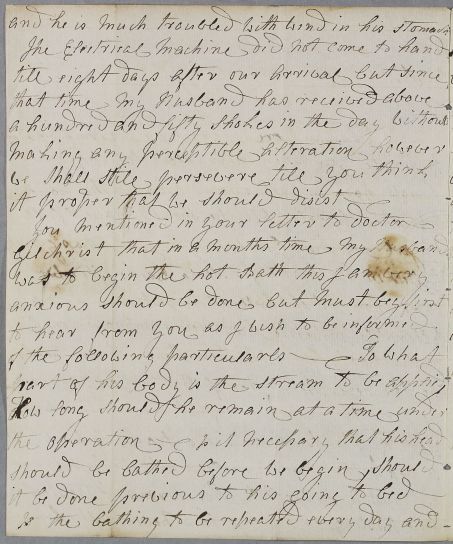 and he is much troubled with wind in his stomach
The Electrical Machine did not come to hand
till eight days after our arrival but since
that time my Husband has received above
a hundred and fifty shokes in the day without
making any perceptible alteration however
we shall still persevere till you think
it proper that we should disist
You mentioned in your letter to doctor
Gilchrist that in a months time my Husband
was to begin the hot Bath this I am very
anxious should be done but must beg first
to hear from you as I wish to be informed
of the following particulars — To what
part of his body is the stream to be applied
How long should he remain at a time under
the operation is it necessary that his head
should be bathed before we begin should
it be done previous to his going to bed
Is the bathing to be repeated every day and